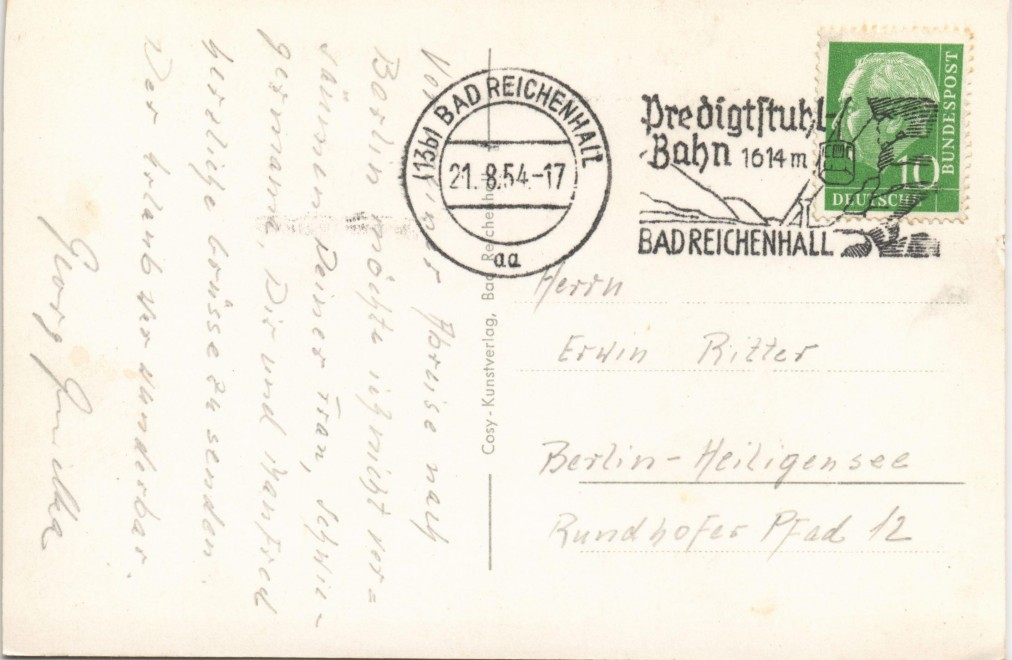 Vor meiner Abreise nach
Berlin möchte ich nicht ver=
säumen Deiner Frau, Schwie-
germama, Dir und Manfred
herzliche Grüsse zu senden.
Der Urlaub war wunderbar.
Georg
(13b) BAD REICHENHALL
21.8.54-17
aa
Predigtstuhl-
Bahn 1614 m
BAD REICHENHALL
DEUTSCHE
BUNDESPOST
10
Cosy-Kunstverlag, Bad Reichenhall
Herrn
Erwin Ritter
Berlin-Heiligensee
Rundhofer Pfad 12